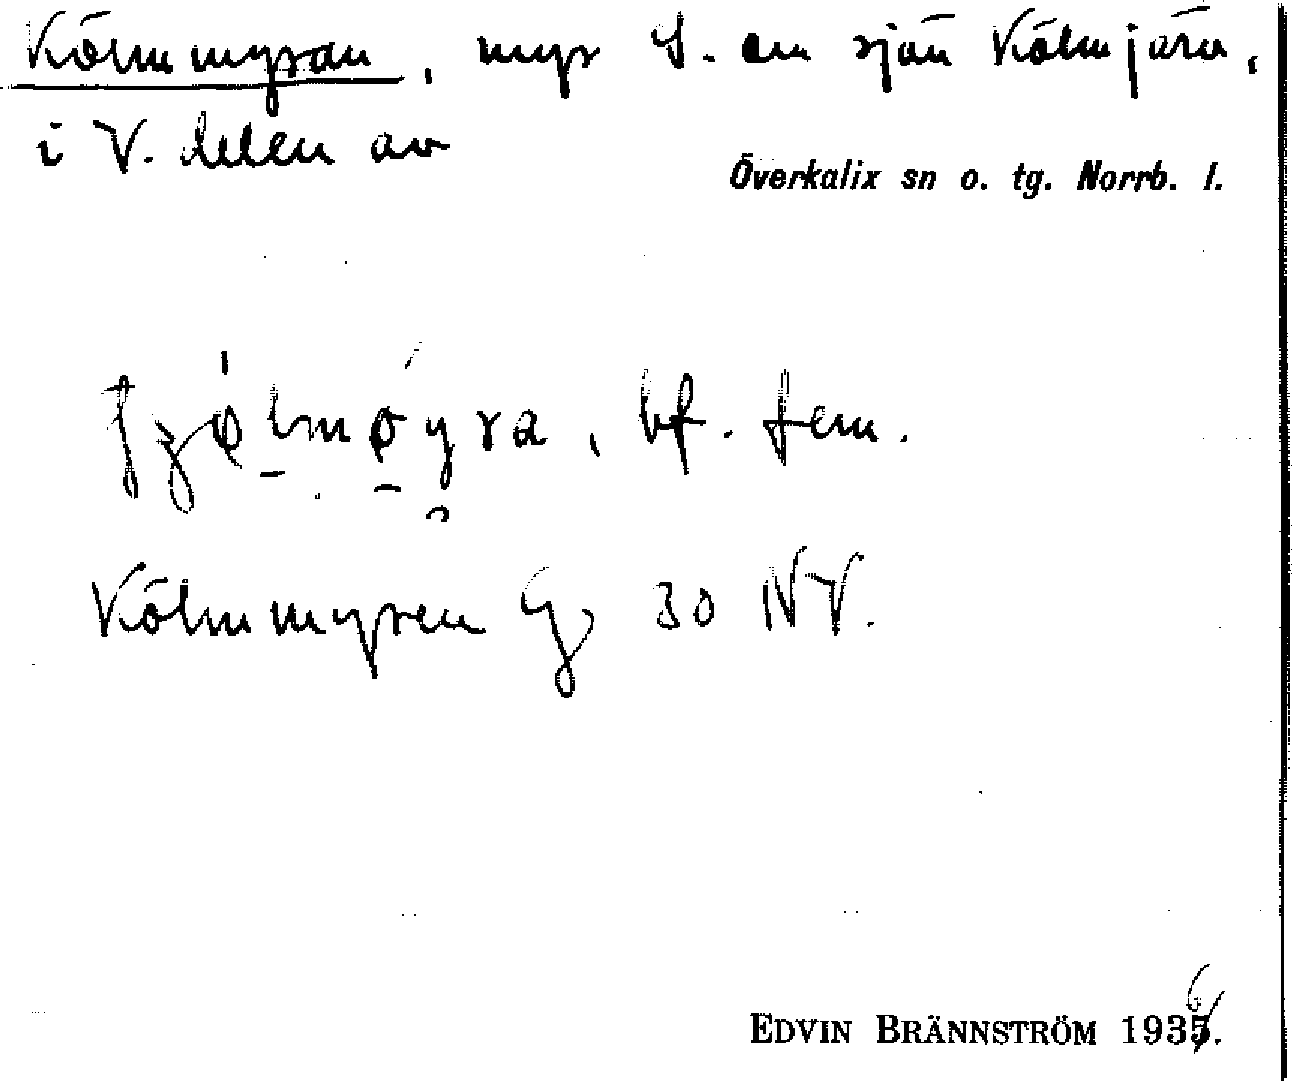 Kölmmyran, myr S. om sjön Kölmjärv,
i V. delen av
Överkalix sn o. tg. Norrb. l.
bf. fem.
Kölmmyren G 30 NV.
EDVIN BRÄNNSTRÖM 1936.